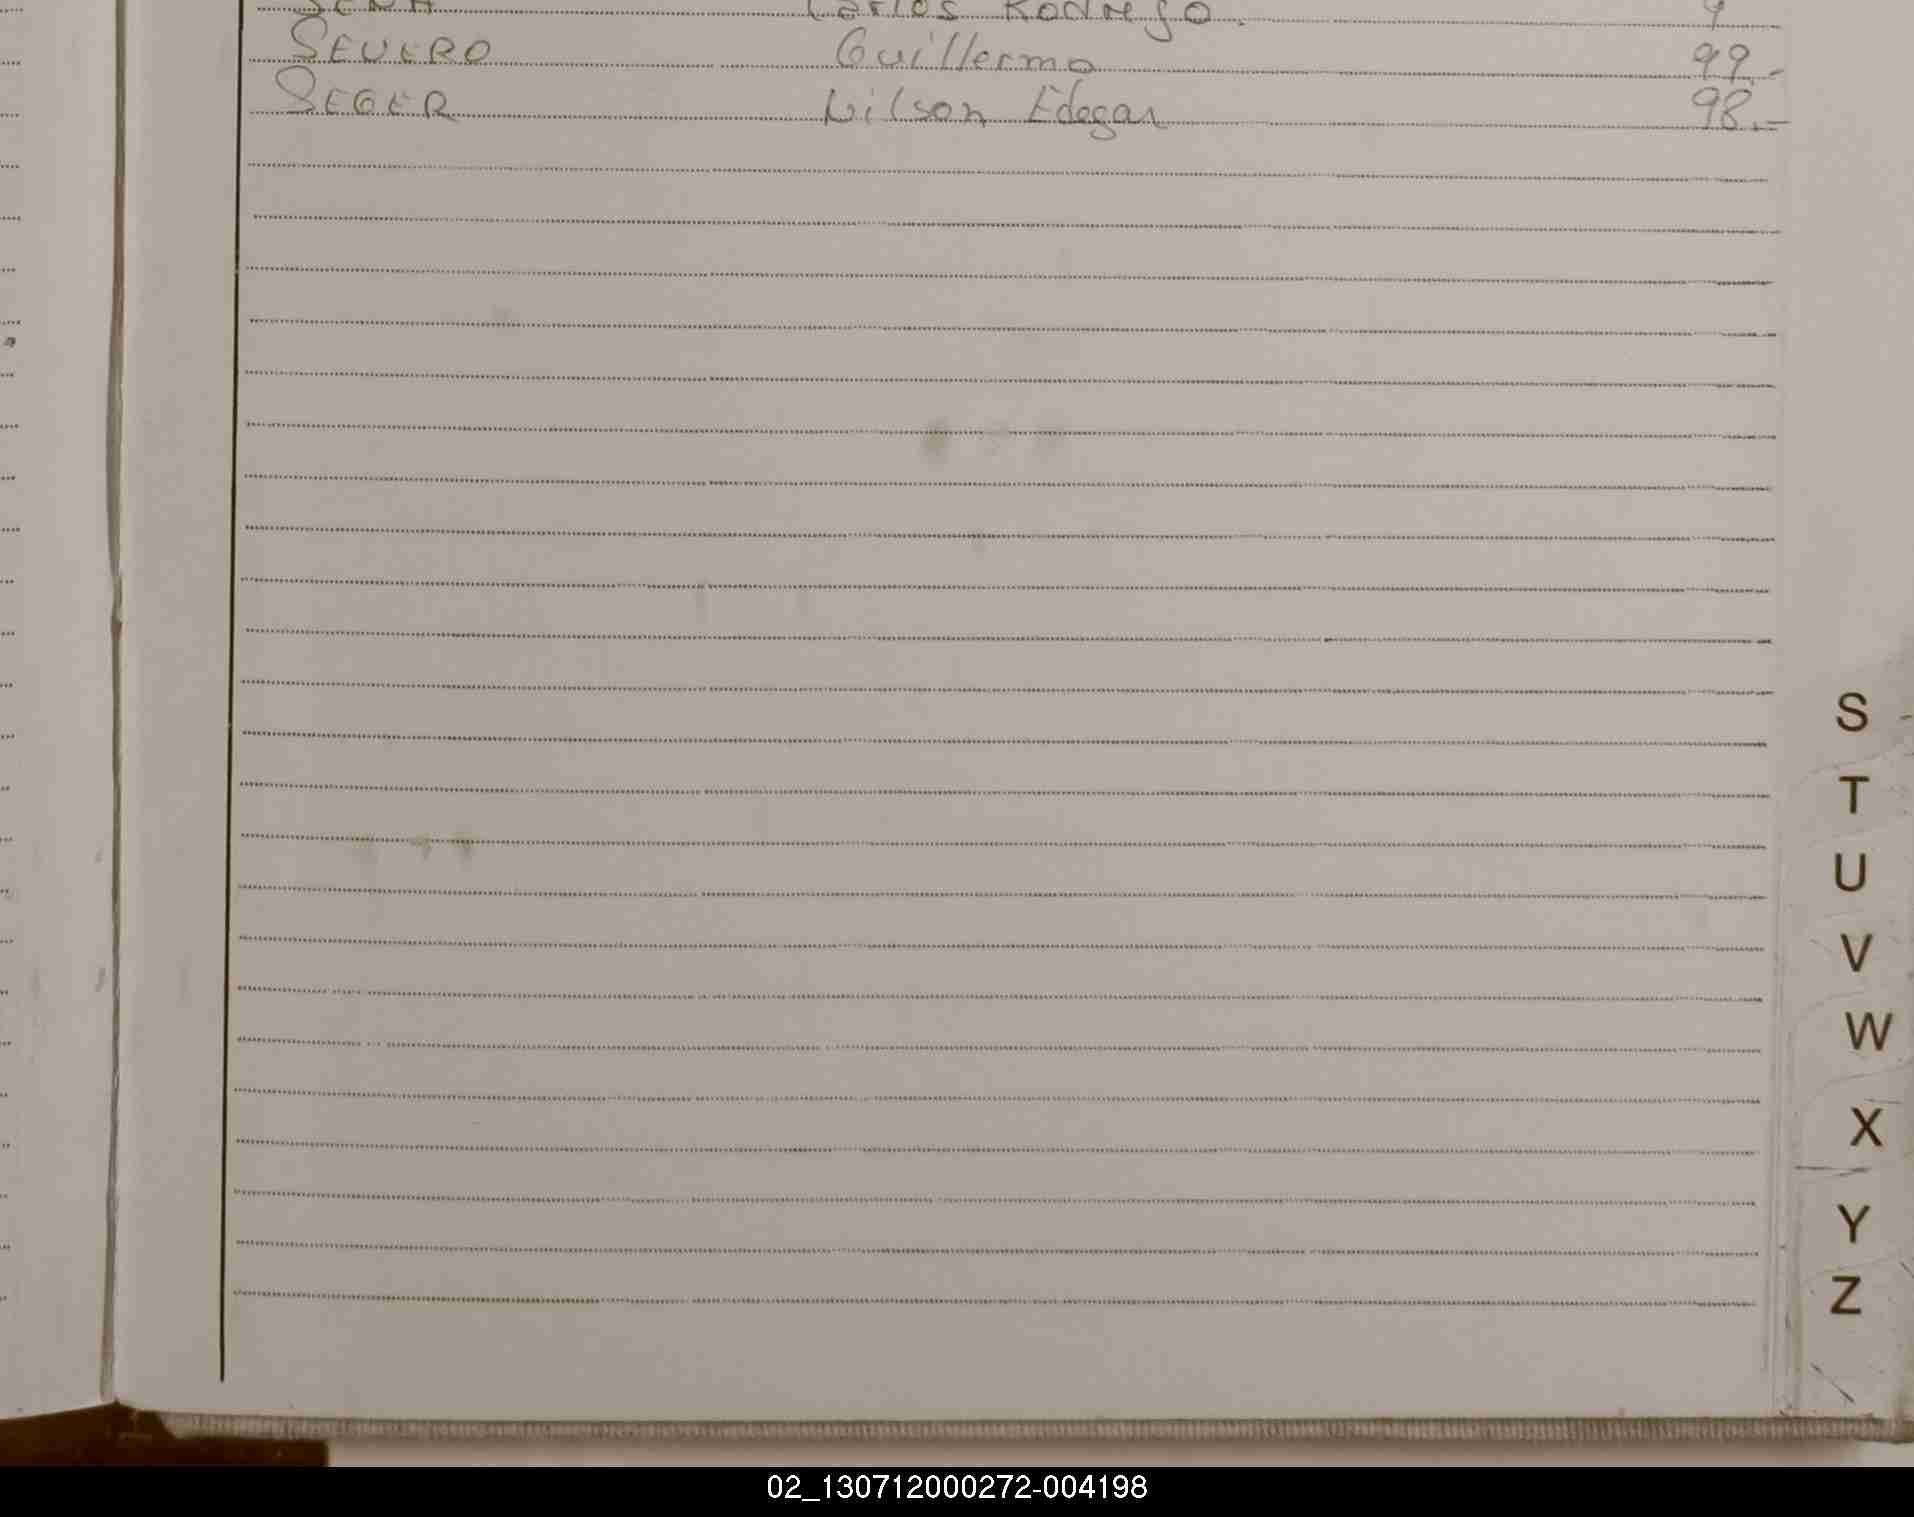 SENA Carlos Rodrigo.
SEVERO Guillermo 99.-
SEGER Nilson Edegar 98.-
S
T
U
V
W
X
Y
Z
02_130712000272-004198